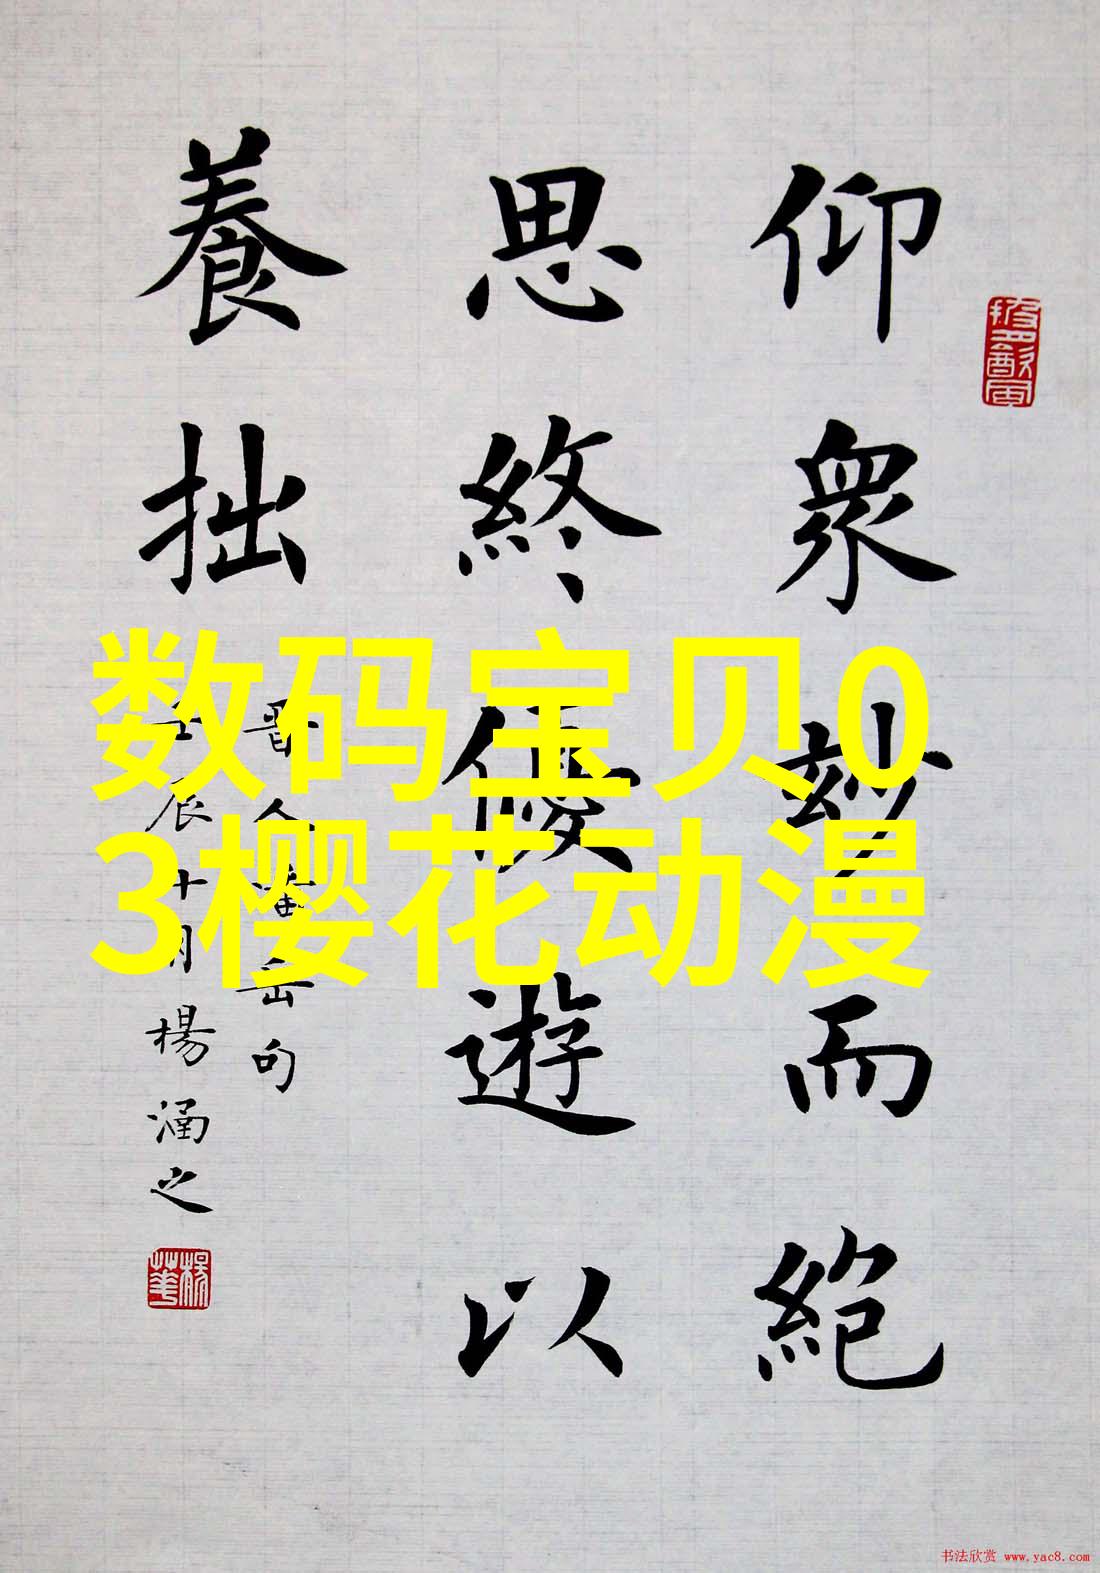 仰衆妙而絶
思終優遊以
養拙
晉人潘岳句
壬辰十月楊涵之
数码宝贝0
3樱花动漫
书法欣赏 www.yac8.com